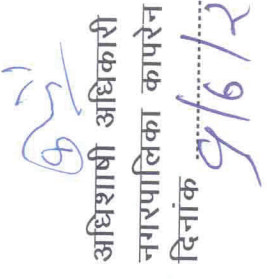 अधिशाषी अधिकारी
नगरपालिका कापरेन
दिनांक 9/6/2